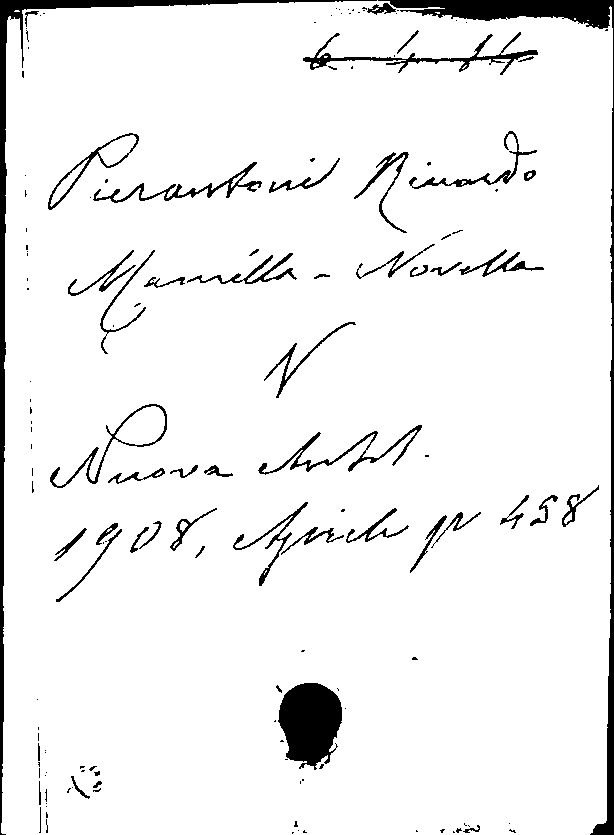 6. 4. 14
Pierantoni Ricardo
Mamilla - Novella
N
Nuova Antol.
1908, Aprile p 458